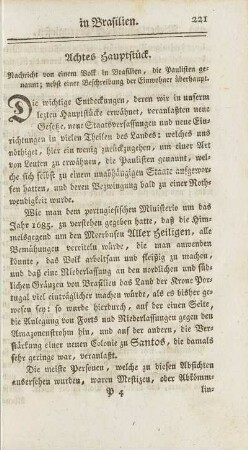 in Brasilien. 221
Achtes Hauptstück.
Nachricht von einem Volk in Brasilien, die Paulisten ge-
nannt; nebst einer Beschreibung der Einwohner überhaupt.
Die wichtige Entdeckungen, deren wir in unserm
letzten Hauptstücke erwähnet, veranlaßten neue
Gesetze, neue Staatsverfassungen und neue Ein-
richtungen in vielen Theilen des Landes: welches uns
nöthiget, hier ein wenig zurückzugehen, um einer Art
von Leuten zu erwähnen, die Paulisten genannt,
welche sich selbst zu einem unabhängigen Staate aufgewor-
fen hatten, und deren Bezwingung bald zu einer Noth-
wendigkeit wurde.
Wie man dem portugiesischen Ministerio um das
Jahr 1685. zu verstehen gegeben hatte, daß die Him-
melsgegend um den Meerbusen Aller Heiligen, alle
Bemühungen vereiteln würde, die man anwenden
könnte, das Volk arbeitsam und fleißig zu machen,
und daß eine Niederlassung an den nordlichen und süd-
lichen Gränzen von Brasilien das Land der Krone Por-
tugal viel einträglicher machen würde, als es bisher ge-
wesen sey: so wurde hierdurch, auf der einen Seite,
die Anlegung von Forts und Niederlassungen gegen den
Amazonenstrohm hin, und auf der andern, die Ver-
stärkung einer neuen Colonie zu Santos, die damals
sehr geringe war, veranlaßt.
Die meiste Personen, welche zu diesen Absichten
ausersehen wurden, waren Mestizen, oder Abkömm-
P 4 lin-